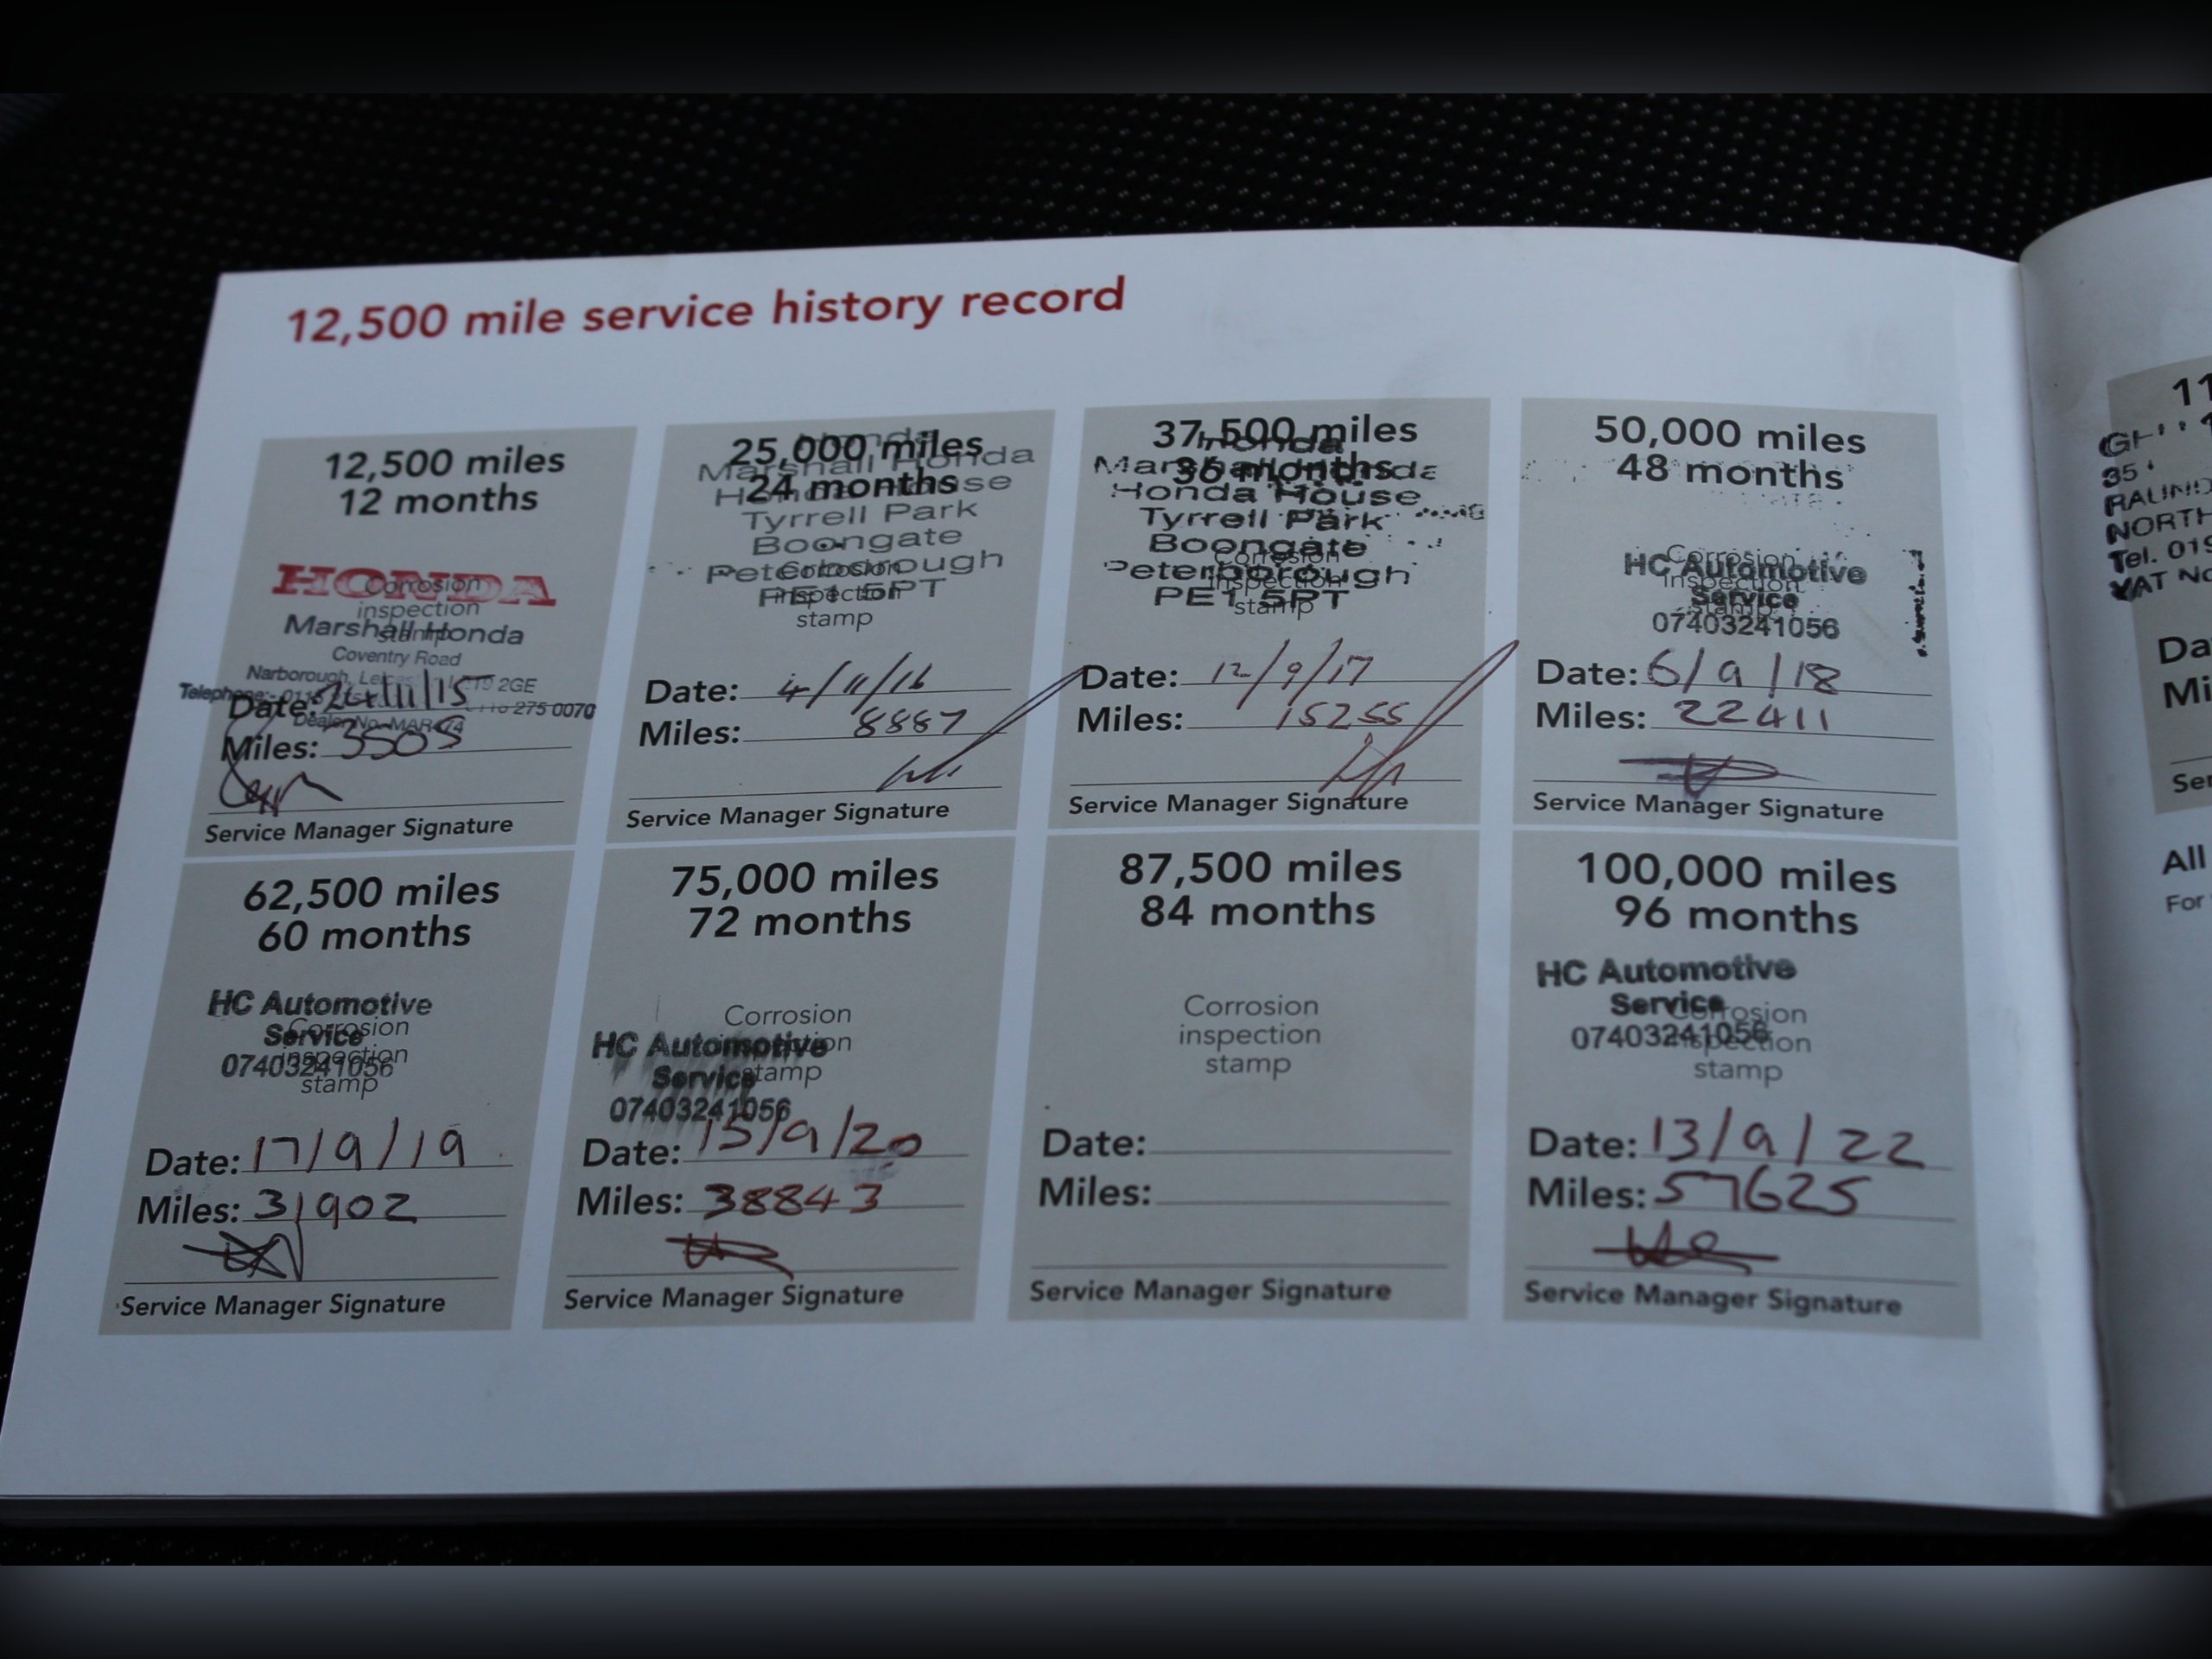 12,500 mile service history record
12,500 miles
12 months
HONDA
Corrosion
inspection
stamp
Marshall Honda
Coventry Road
Narborough, 2GE
Telephone:- 275 0070
Date:
Dealer No.
Miles: 3505
Service Manager Signature
25,000 miles
24 months
Honda
Marshall Honda
Honda House
Tyrrell Park
Boongate
Peterborough
PE1 5PT
Corrosion
inspection
stamp
Date: 4/11/16
Miles: 8887
Service Manager Signature
37,500 miles
36 months
Honda
Marshall Honda
Honda House
Tyrrell Park
Boongate
Peterborough
PE1 5PT
Corrosion
inspection
stamp
Date: 12/9/17
Miles: 15255
Service Manager Signature
50,000 miles
48 months
Corrosion
inspection
stamp
HC Automotive
Service
07403241056
Date: 6/9/18
Miles: 22411
Service Manager Signature
62,500 miles
60 months
HC Automotive
Service
07403241056
Corrosion
inspection
stamp
Date: 17/9/19
Miles: 31902
Service Manager Signature
75,000 miles
72 months
Corrosion
inspection
stamp
HC Automotive
Service
07403241056
Date: 15/9/20
Miles: 38843
Service Manager Signature
87,500 miles
84 months
Corrosion
inspection
stamp
Date:
Miles:
Service Manager Signature
100,000 miles
96 months
HC Automotive
Service
07403241056
Corrosion
inspection
stamp
Date: 13/9/22
Miles: 57625
Service Manager Signature
11
35
RAUND
NORTH
Tel. 019
VAT No
Da
Mi
Ser
All
For